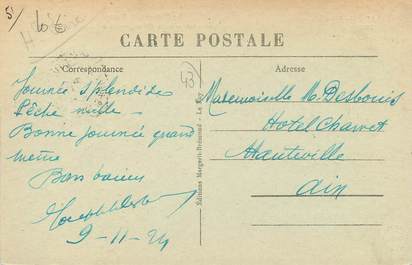 5/ 10 €
CARTE POSTALE
Correspondance
Adresse
43
Journée splendide
Pêche nulle
Bonne journée quand
même
Bons baisers
9-11-24
Éditions Margerit-Brémond - Le Puy
Mademoiselle M. Desbouis
Hotel Charvet
Hauteville
Ain